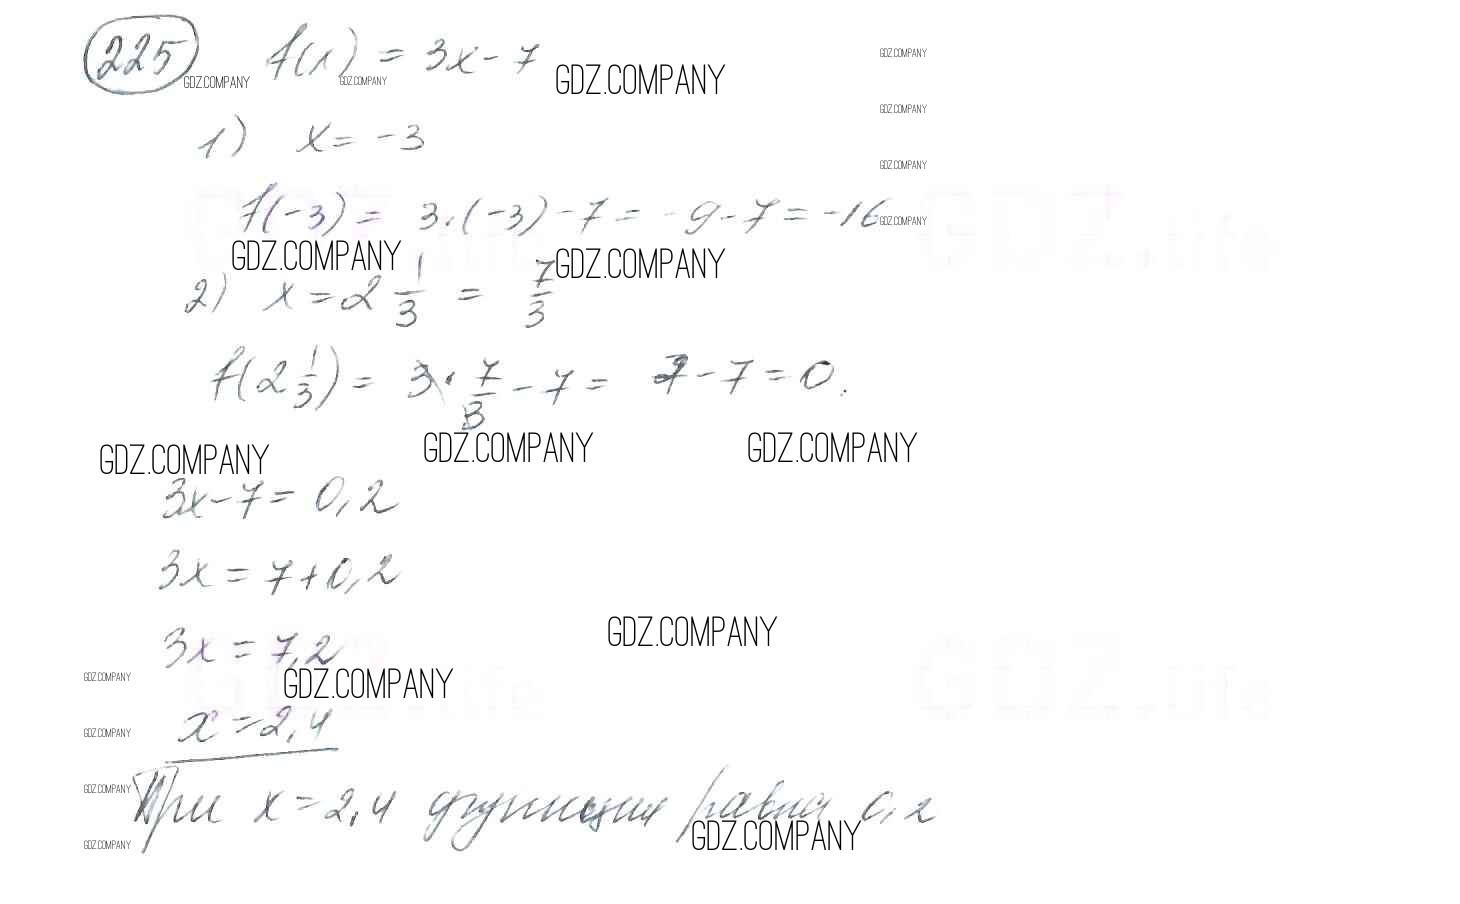 225 f(x) = 3x - 7
GDZ.COMPANY GDZ.COMPANY GDZ.COMPANY GDZ.COMPANY
GDZ.COMPANY
1) x = -3
GDZ.COMPANY
f(-3) = 3·(-3) - 7 = -9 - 7 = -16
GDZ.COMPANY
GDZ.COMPANY GDZ.COMPANY
GDZ.life GDZ.life
2) x = 2 1/3 = 7/3
f(2 1/3) = 3 · 7/3 - 7 = 7 - 7 = 0.
GDZ.COMPANY GDZ.COMPANY GDZ.COMPANY
3x - 7 = 0,2
3x = 7 + 0,2
GDZ.COMPANY
3x = 7,2
GDZ.COMPANY GDZ.COMPANY
GDZ.life GDZ.life
x = 2,4
GDZ.COMPANY
GDZ.COMPANY
При x = 2,4 функция равна 0,2
GDZ.COMPANY GDZ.COMPANY